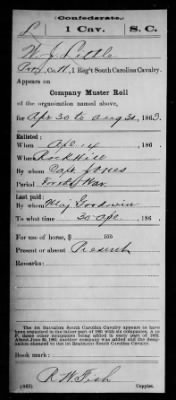 Confederate.
L 1 Cav. S. C.
W. J. Little
Pvt, Co. H, 1 Reg't South Carolina Cavalry.
Appears on
Company Muster Roll
of the organization named above,
for Apr 30 to Aug 31, 1863.
Enlisted:
When Apl 14, 186
Where Rock Hill
By whom Capt Jones
Period For the War
Last paid:
By whom Maj Goodwin
To what time 30 Apl, 186
For use of horse, $
Present or absent Present
Remarks:
The 1st Battalion South Carolina Cavalry appears to have
been organized
About June 25, 1862, another company was added and the designation
changed to 1st Regiment South Carolina Cavalry.
Book mark:
R W Fish
Copyist.